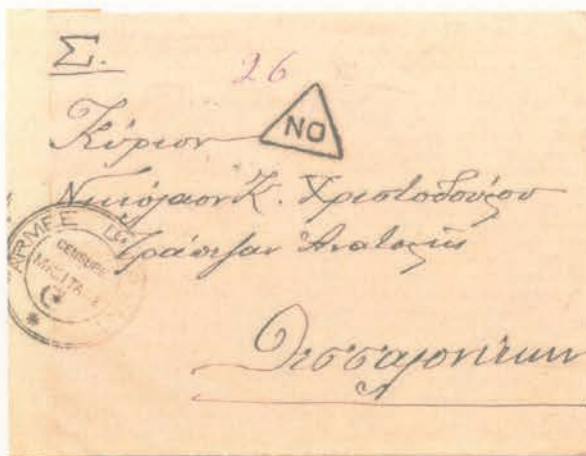 Σ.
26
NO
Κύριον
Νικόλαον Κ. Χριστοδούλου
Τράπεζαν Ἀνατολῆς
ARMEE
CENSURE
MILITA
Θεσσαλονίκην